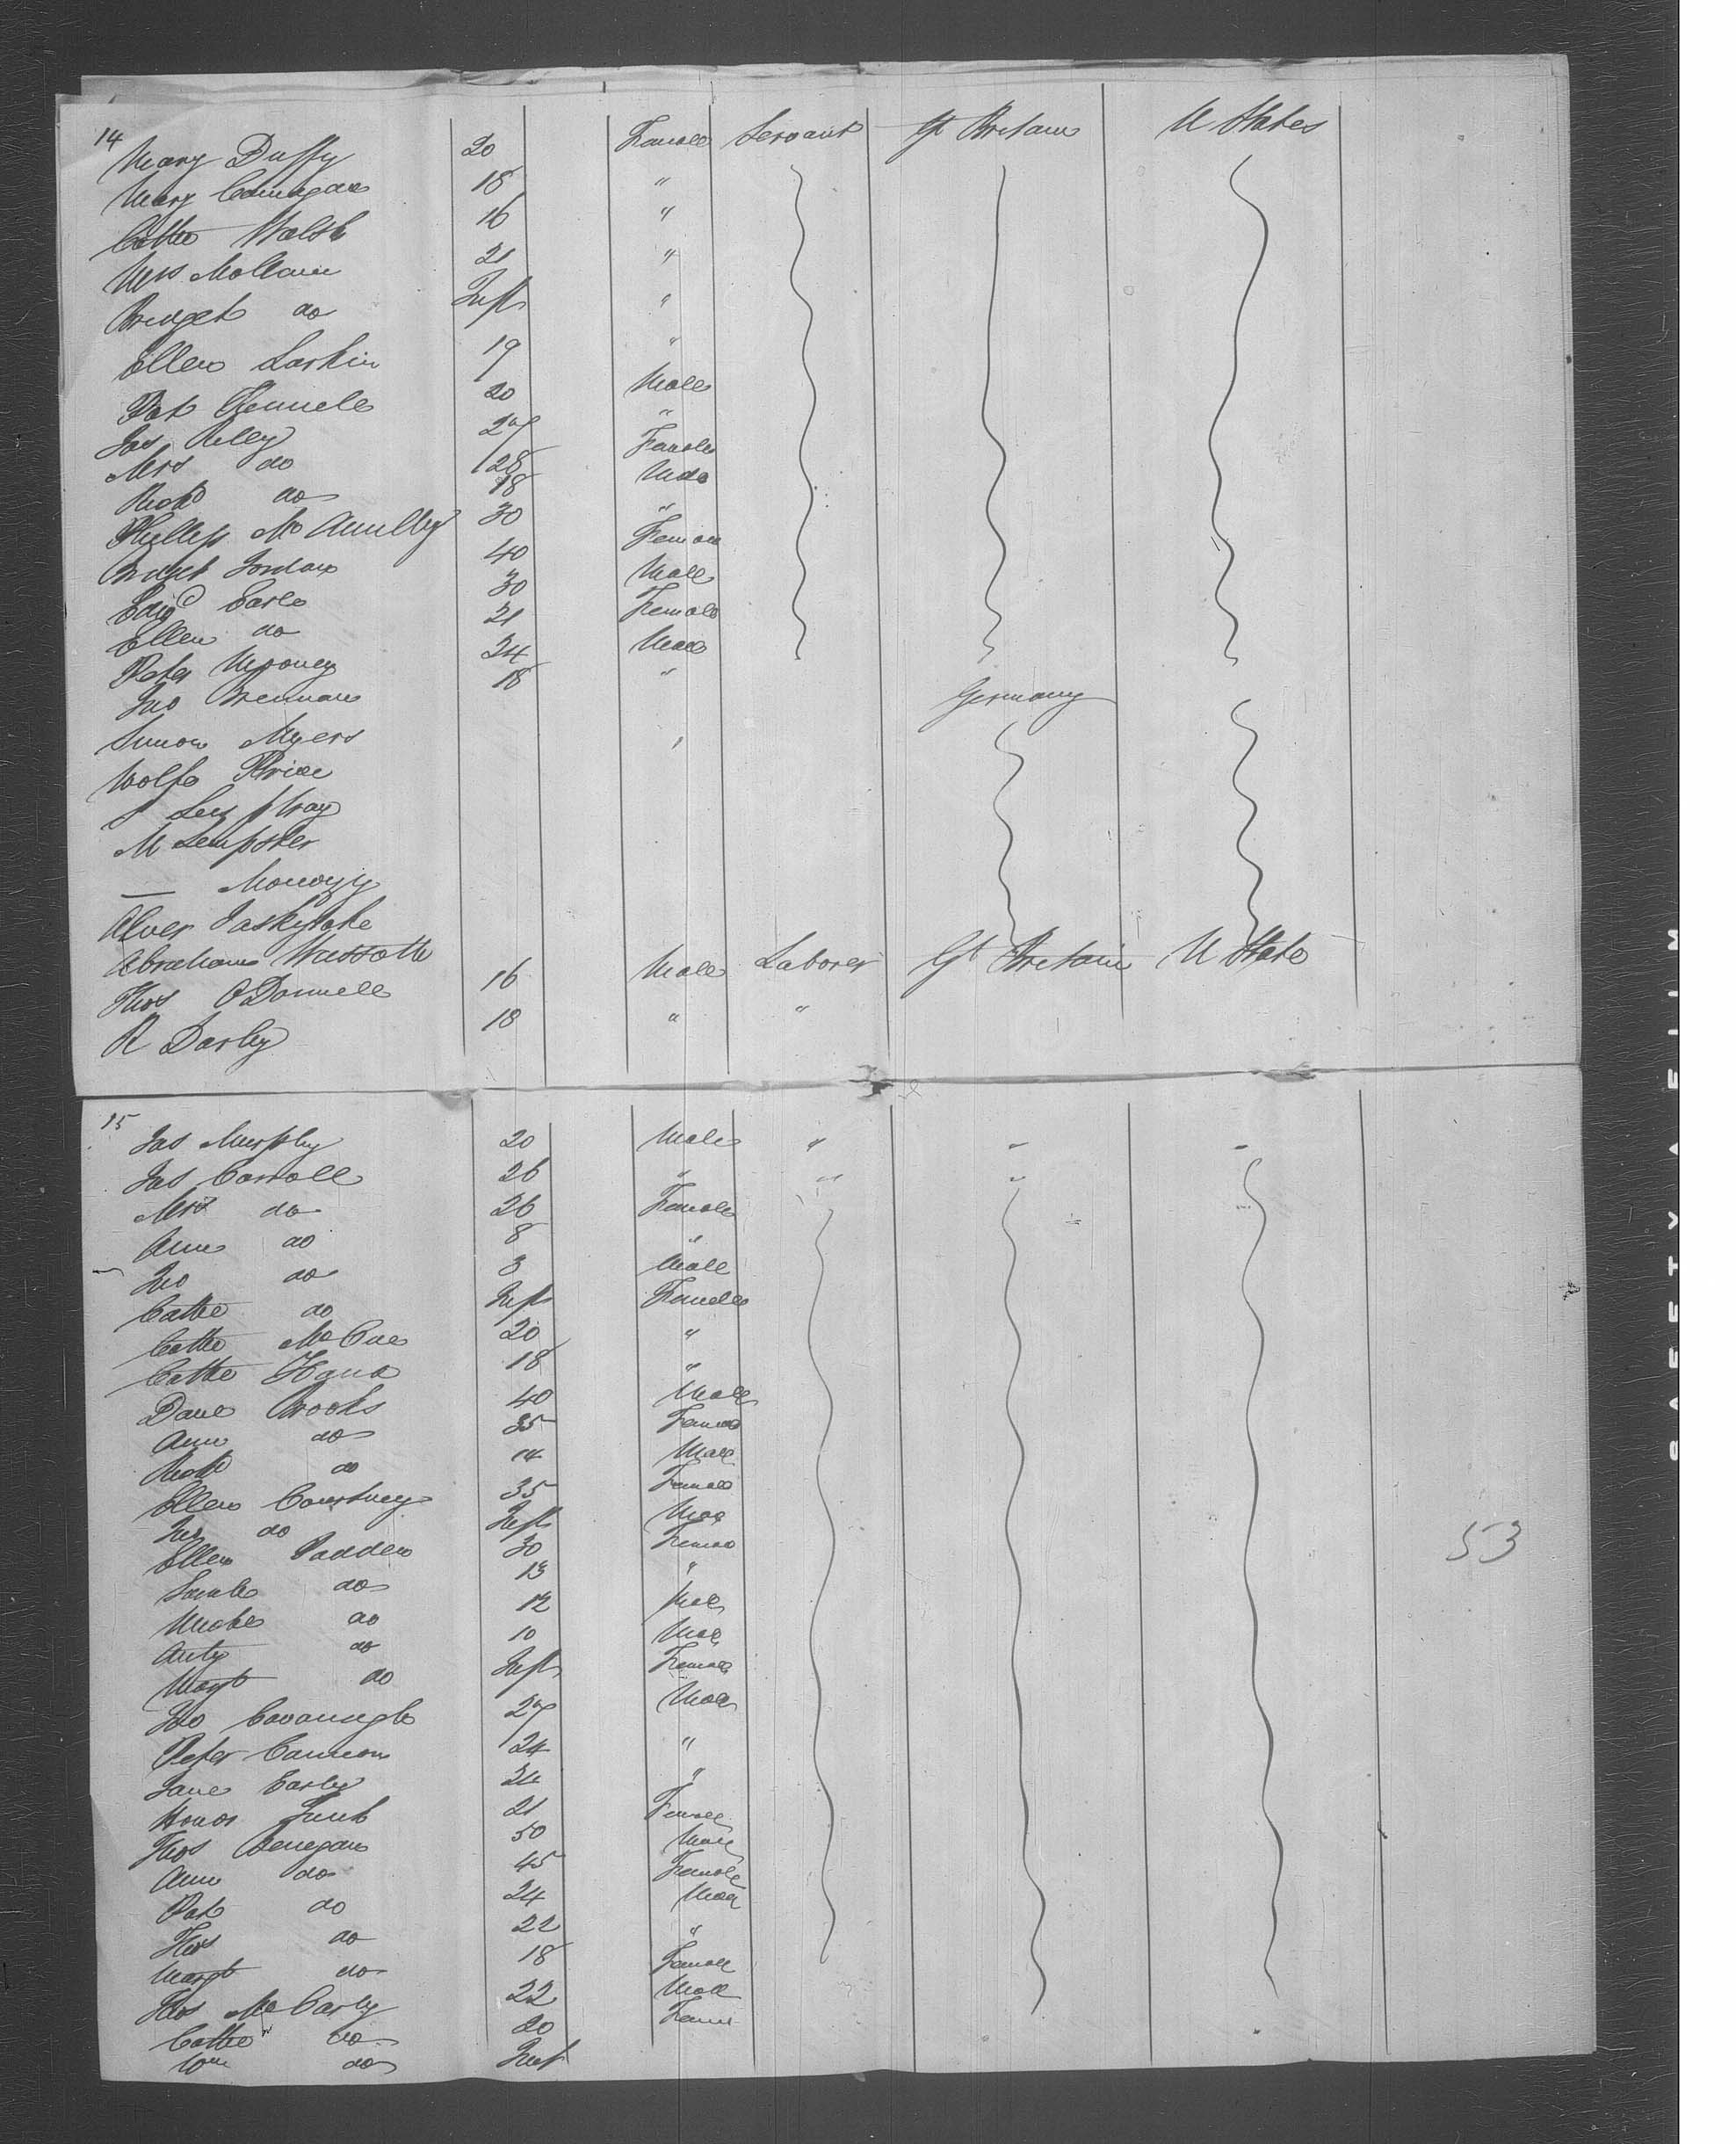 14
Mary Duffy 20 Female Servant Gt Britain U States
Mary 18 "
Cathe Walsh 16 "
Mrs 21 "
Bridget do Inft "
Ellen Larkin 19 "
Pat 20 Male
Jas Rilly 27 "
Mrs do 28 Female
do 18
Phillip Mc 30 "
Bridget Jordan 40 Female
Edwd Earle 30 Male
Ellen do 21 Female
Peter Mooney 24 Male
Jno Brennan 18 "
Simon Myers Germany
Wolfe Price
M Lempster
Abraham
Thos O'Donnell 16 Male Laborer Gt Britain U State
R Darley 18 " "
15
Jas Murphy 20 Male " " "
Jas Carroll 26 " " "
Mrs do 26 Female
Ann do 8 "
Jno do 3 Male
Cathe do Inft Female
Cathe McCue 20 "
Cathe 18 "
Danl Brooks 40 Male
Ann do 35 Female
do 14 Male
Ellen Courtney 35 Female
do Inft Male
Ellen Padden 30 Female
Sarah do 13 "
do 12 Male
Anty do 10 Male
Margt do Inft Female
Jno Cavanagh 27 Male
Peter Cannon 24 "
Jane Early 24 "
Honor 21 Female
Thos 50 Male
Ann do 45 Female
Pat do 24 Male
Thos do 22 "
Margt do 18 Female
Thos McCarty 22 Male
Cathe do 20 Fem
Wm do Inft
53
SAFETY FILM